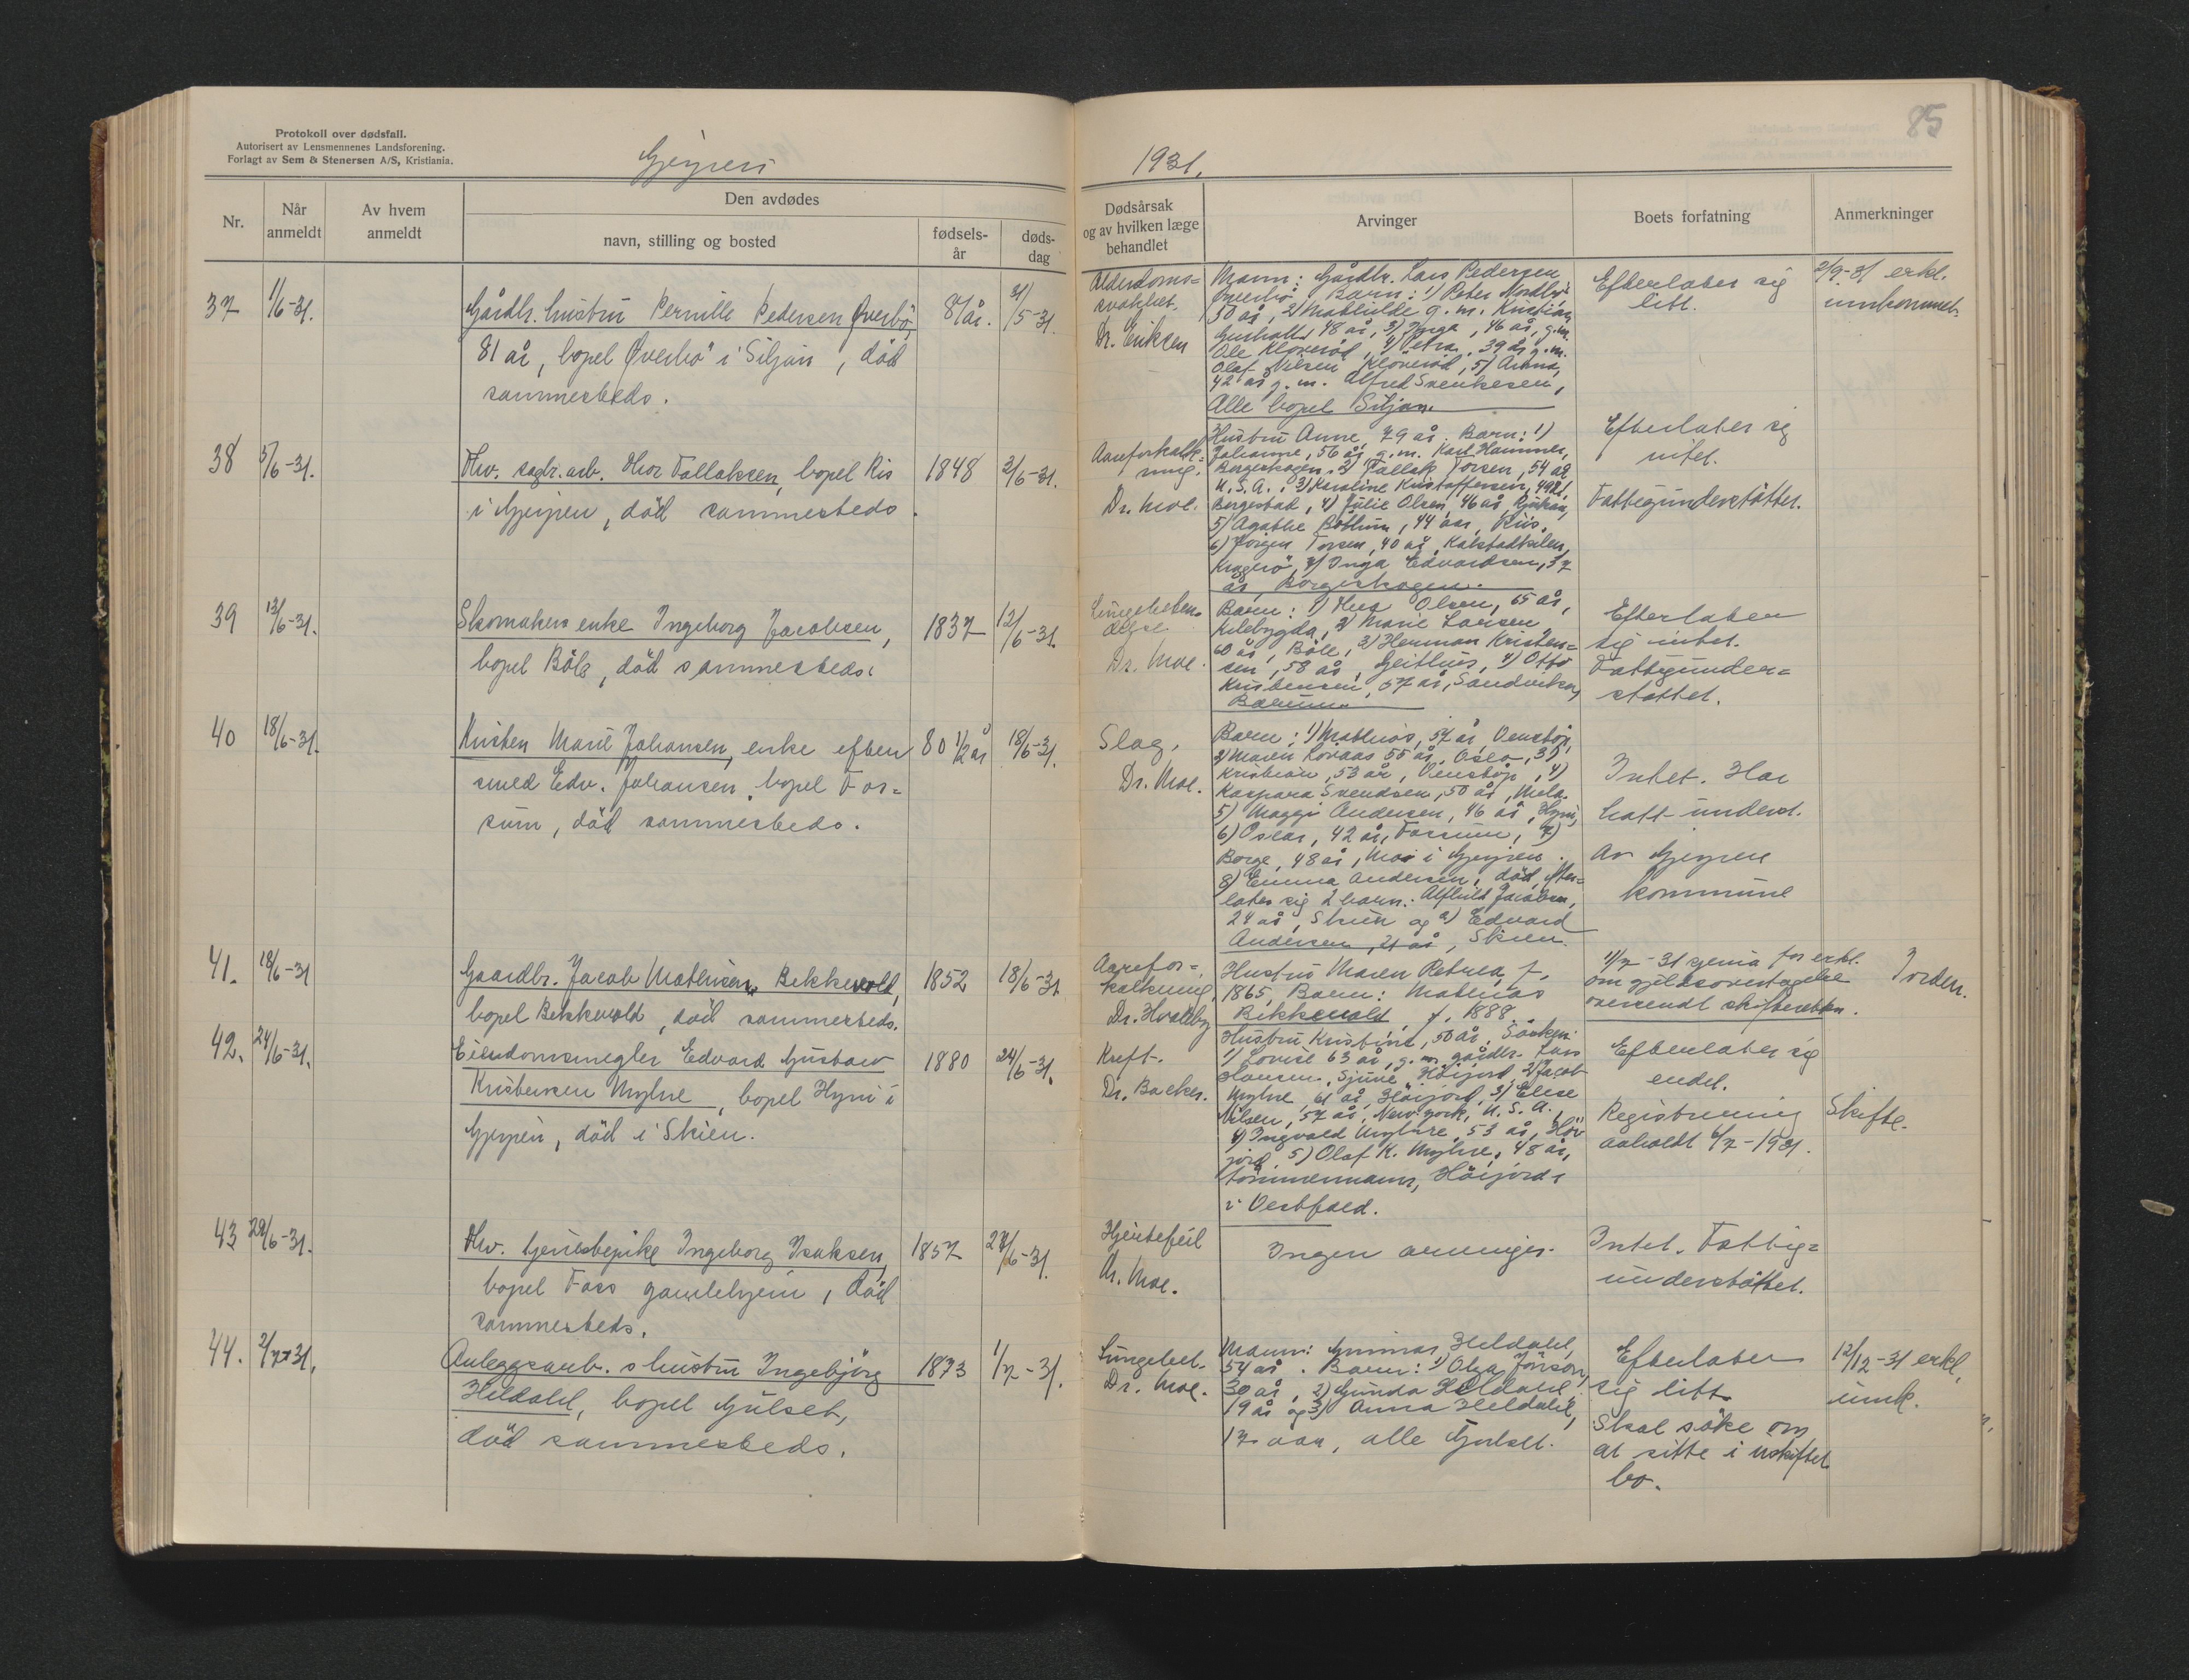 Protokoll over dødsfall.
Autorisert av Lensmennenes Landsforening.
Forlagt av Sem & Stenersen A/S, Kristiania.
Gjerpen
1931.
85
Nr.
Når anmeldt
Av hvem anmeldt
Den avdødes
navn, stilling og bosted
fødsels-år
døds-dag
Dødsårsak og av hvilken læge behandlet
Arvinger
Boets forfatning
Anmerkninger
37
1/6-31.
Gårdbr. hustru Pernille Pedersen Øverbö,
81 år, bopel Øverbö i Siljan, död
sammesteds.
81 år.
31/5-31.
Alderdoms=
svakhet.
Dr. Eriksen
Mann: Gårdbr. Lars Pedersen
Øverbö. Barn: 1) Peter Nordby
50 år, 2) Mathilde g.m. Kristian
48 år, 3) Inga, 46 år, g.m.
Ole Kloveröd, 4) Petra, 39 år g.m.
Olaf Nilsen Klöveröd, 5) Anna,
42 år g.m. Alfred Svenkesen,
Alle bopel Siljan.
Efterlater sig
litt.
2/9-31 erkl.
innkommet.
38
5/6-31.
Fhv. sagbr.arb. Thor Tallaksen, bopel Ris
i Gjerpen, död sammesteds.
1848
3/6-31.
Aareforkalk=
ning.
Dr. Moe.
Hustru Anne, 79 år. Barn: 1)
Johanne, 56 år, g.m. Karl Hammer,
Borgeskogen. 2) Tallak Torsen, 54 år
U.S.A., 3) Karoline Kristoffersen, 49 år,
Bergestak, 4) Julie Olsen, 46 år, Rjukan,
5) Agathe Böhlum, 44 aar, Riis.
6) Jörgen Torsen, 40 år, Kalstadkilen,
Kragerö, 7) Inga Edvardsen, 37
år, Borgeskogen.
Efterlater sig
intet.
Fattigunderstöttet.
39
13/6-31.
Skomakers enke Ingeborg Jacobsen,
bopel Böle, död sammesteds.
1837
12/6-31.
Lungebeten=
delse
Dr. Moe.
Barn: 1) Olsen, 65 år,
Kilebygda, 2) Marie Larsen
60 år, Böle, 3) Herman Kristen=
sen, 58 år, Geithus, 4) Otto
Kristensen, 57 år, Sandviken,
Bærum
Efterlater
sig intet.
Fattigunder=
stöttet.
40
18/6-31.
Kirsten Marie Johansen, enke efter
smed Edv. Johansen, bopel Fos=
sum, död sammesteds.
80 1/2 år
18/6-31.
Slag.
Dr. Moe.
Barn: 1) Mathias, 57 år, Venstöp,
2) Maren Lövaas 55 år, Oslo, 3)
Kristian, 53 år, Venstöp, 4)
Kaspara Svendsen, 50 år, Mela
5) Maggi Andersen, 46 år, Hyni,
6) Oskar, 42 år, Fossum, 7)
Borge, 48 år, Moi i Gjerpen.
8) Emma Andersen, död, efter=
later sig 2 barn: Alfhild Jacobsen,
24 år, Skien og 2) Edvard
Andersen, 21 år, Skien.
Intet. Har
hatt underst.
Av Gjerpen
kommune
41.
18/6-31
Gaardbr. Jacob Mathisen Bekkevold,
bopel Bekkevold, död sammesteds.
1852
18/6-31.
Aarefor=
kalkning.
Dr. Hvalby
Hustru Maren Petrea, f.
1865, Barn: Mathias
Bekkevold, f. 1888.
1/7-31 erkl.
om gjeldsovertagelse
oversendt skifteretten.
Iorden.
42.
24/6-31.
Eiendomsmegler Edvard Gustav
Kristensen Myhre, bopel Hyni i
Gjerpen, död i Skien.
1880
24/6-31.
Kreft.
Dr. Backer.
Hustru Kristine, 50 år. Söskn:
1) Lovise 63 år, g.m. gårdbr. Lars
Hansen, Sjuve, Höijord 2) Jacob
Myhre, 61 år, Höijord, 3) Elise
Nilsen, 57 år, New-york, U.S.A.,
4) Ingvald Myhre, 53 år, Höi
jord, 5) Olaf K. Myhre, 48 år,
tömmermann, Höijord
i Vestfold.
Efterlater sig
endel.
Registrering
avholdt 4/7-1931.
Skifte.
43
29/6-31.
Fhv. tjenestepike Ingeborg Isaksen,
bopel Foss gamlehjem, död
sammesteds.
1857
28/6-31.
Hjertefeil
Dr. Moe.
Ingen arvinger.
Intet. Fattig=
understöttet.
44.
2/7-31.
Anleggsarb.s hustru Ingebjörg
Heldahl, bopel Gulset,
död sammesteds.
1873
1/7-31.
Lungebet.
Dr. Moe.
Mann: Gunnar Heldahl,
54 år. Barn: 1) Olga Jörsön,
30 år, 2) Gunda Heldahl
19 år og 3) Anna Heldahl,
17 aar, alle Gulset.
Efterlater
sig litt.
Skal söke om
at sitte i uskiftet
bo.
12/12-31 erkl.
innk.